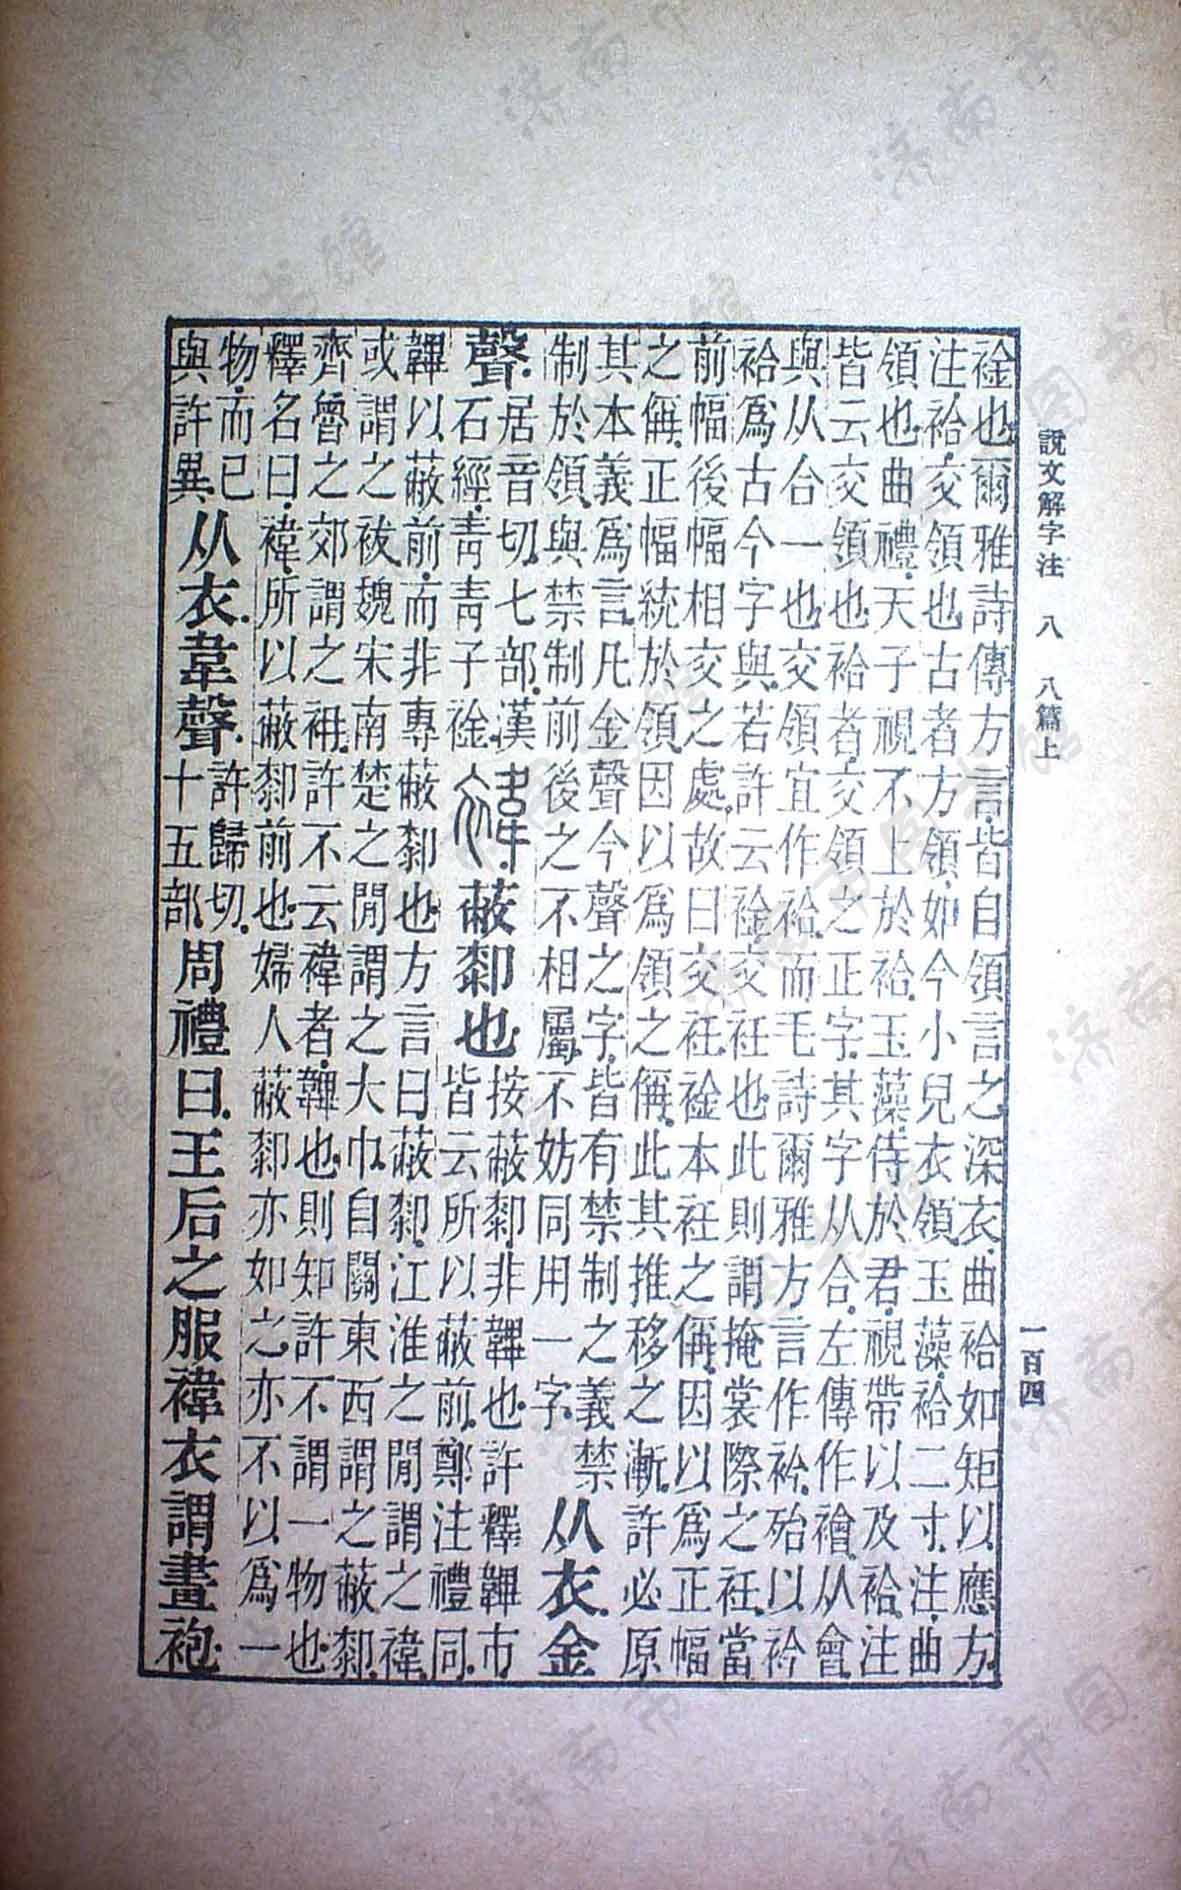 說文解字注 八 八篇上 一百四
䘳也爾雅詩傳方言皆自領言之深衣曲袷如矩以應方
注袷交領也古者方領如今小兒衣領玉藻袷二寸注曲
領也曲禮天子視不上於袷玉藻侍於君視帶以及袷注
皆云交領也袷者交領之正字其字从合左傳作襘从會
與从合一也交領宜作袷而毛詩爾雅方言作衿殆以衿
袷爲古今字與若許云䘳交衽也此則謂掩裳際之衽當
前幅後幅相交之處故曰交衽䘳本衽之偁因以爲正幅
之偁正幅統於領因以爲領之偁此其推移之漸許必原
其本義爲言凡金聲今聲之字皆有禁制之義禁
制於領與禁制前後之不相屬不妨同用一字
从衣金
聲居音切七部漢
石經青青子䘳
褘蔽䣛也按蔽䣛非韠也許釋韠市
皆云所以蔽前鄭注禮同
韠以蔽前而非專蔽䣛也方言曰蔽䣛江淮之閒謂之褘
或謂之袚魏宋南楚之閒謂之大巾自關東西謂之蔽䣛
齊魯之郊謂之袡許不云褘者韠也則知許不謂一物也
釋名曰褘所以蔽䣛前也婦人蔽䣛亦如之亦不以爲一
物而已
與許異
从衣韋聲許歸切
十五部
周禮曰王后之服褘衣謂畫袍
济南市图书馆